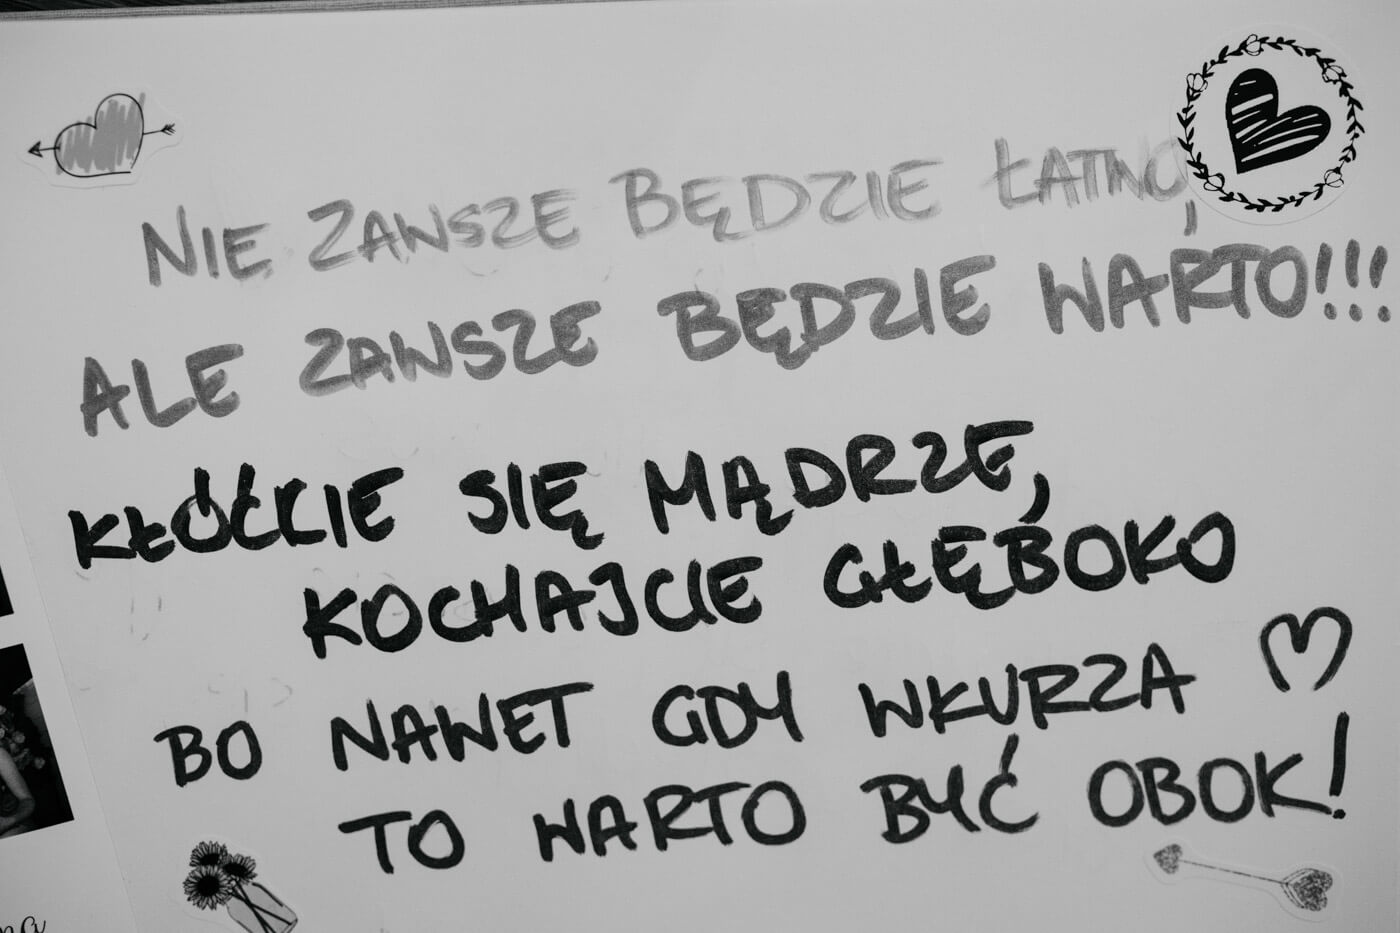 NIE ZAWSZE BĘDZIE ŁATWO,
ALE ZAWSZE BĘDZIE WARTO!!!
KŁÓĆCIE SIĘ MĄDRZE,
KOCHAJCIE GŁĘBOKO
BO NAWET GDY WKURZA
TO WARTO BYĆ OBOK!